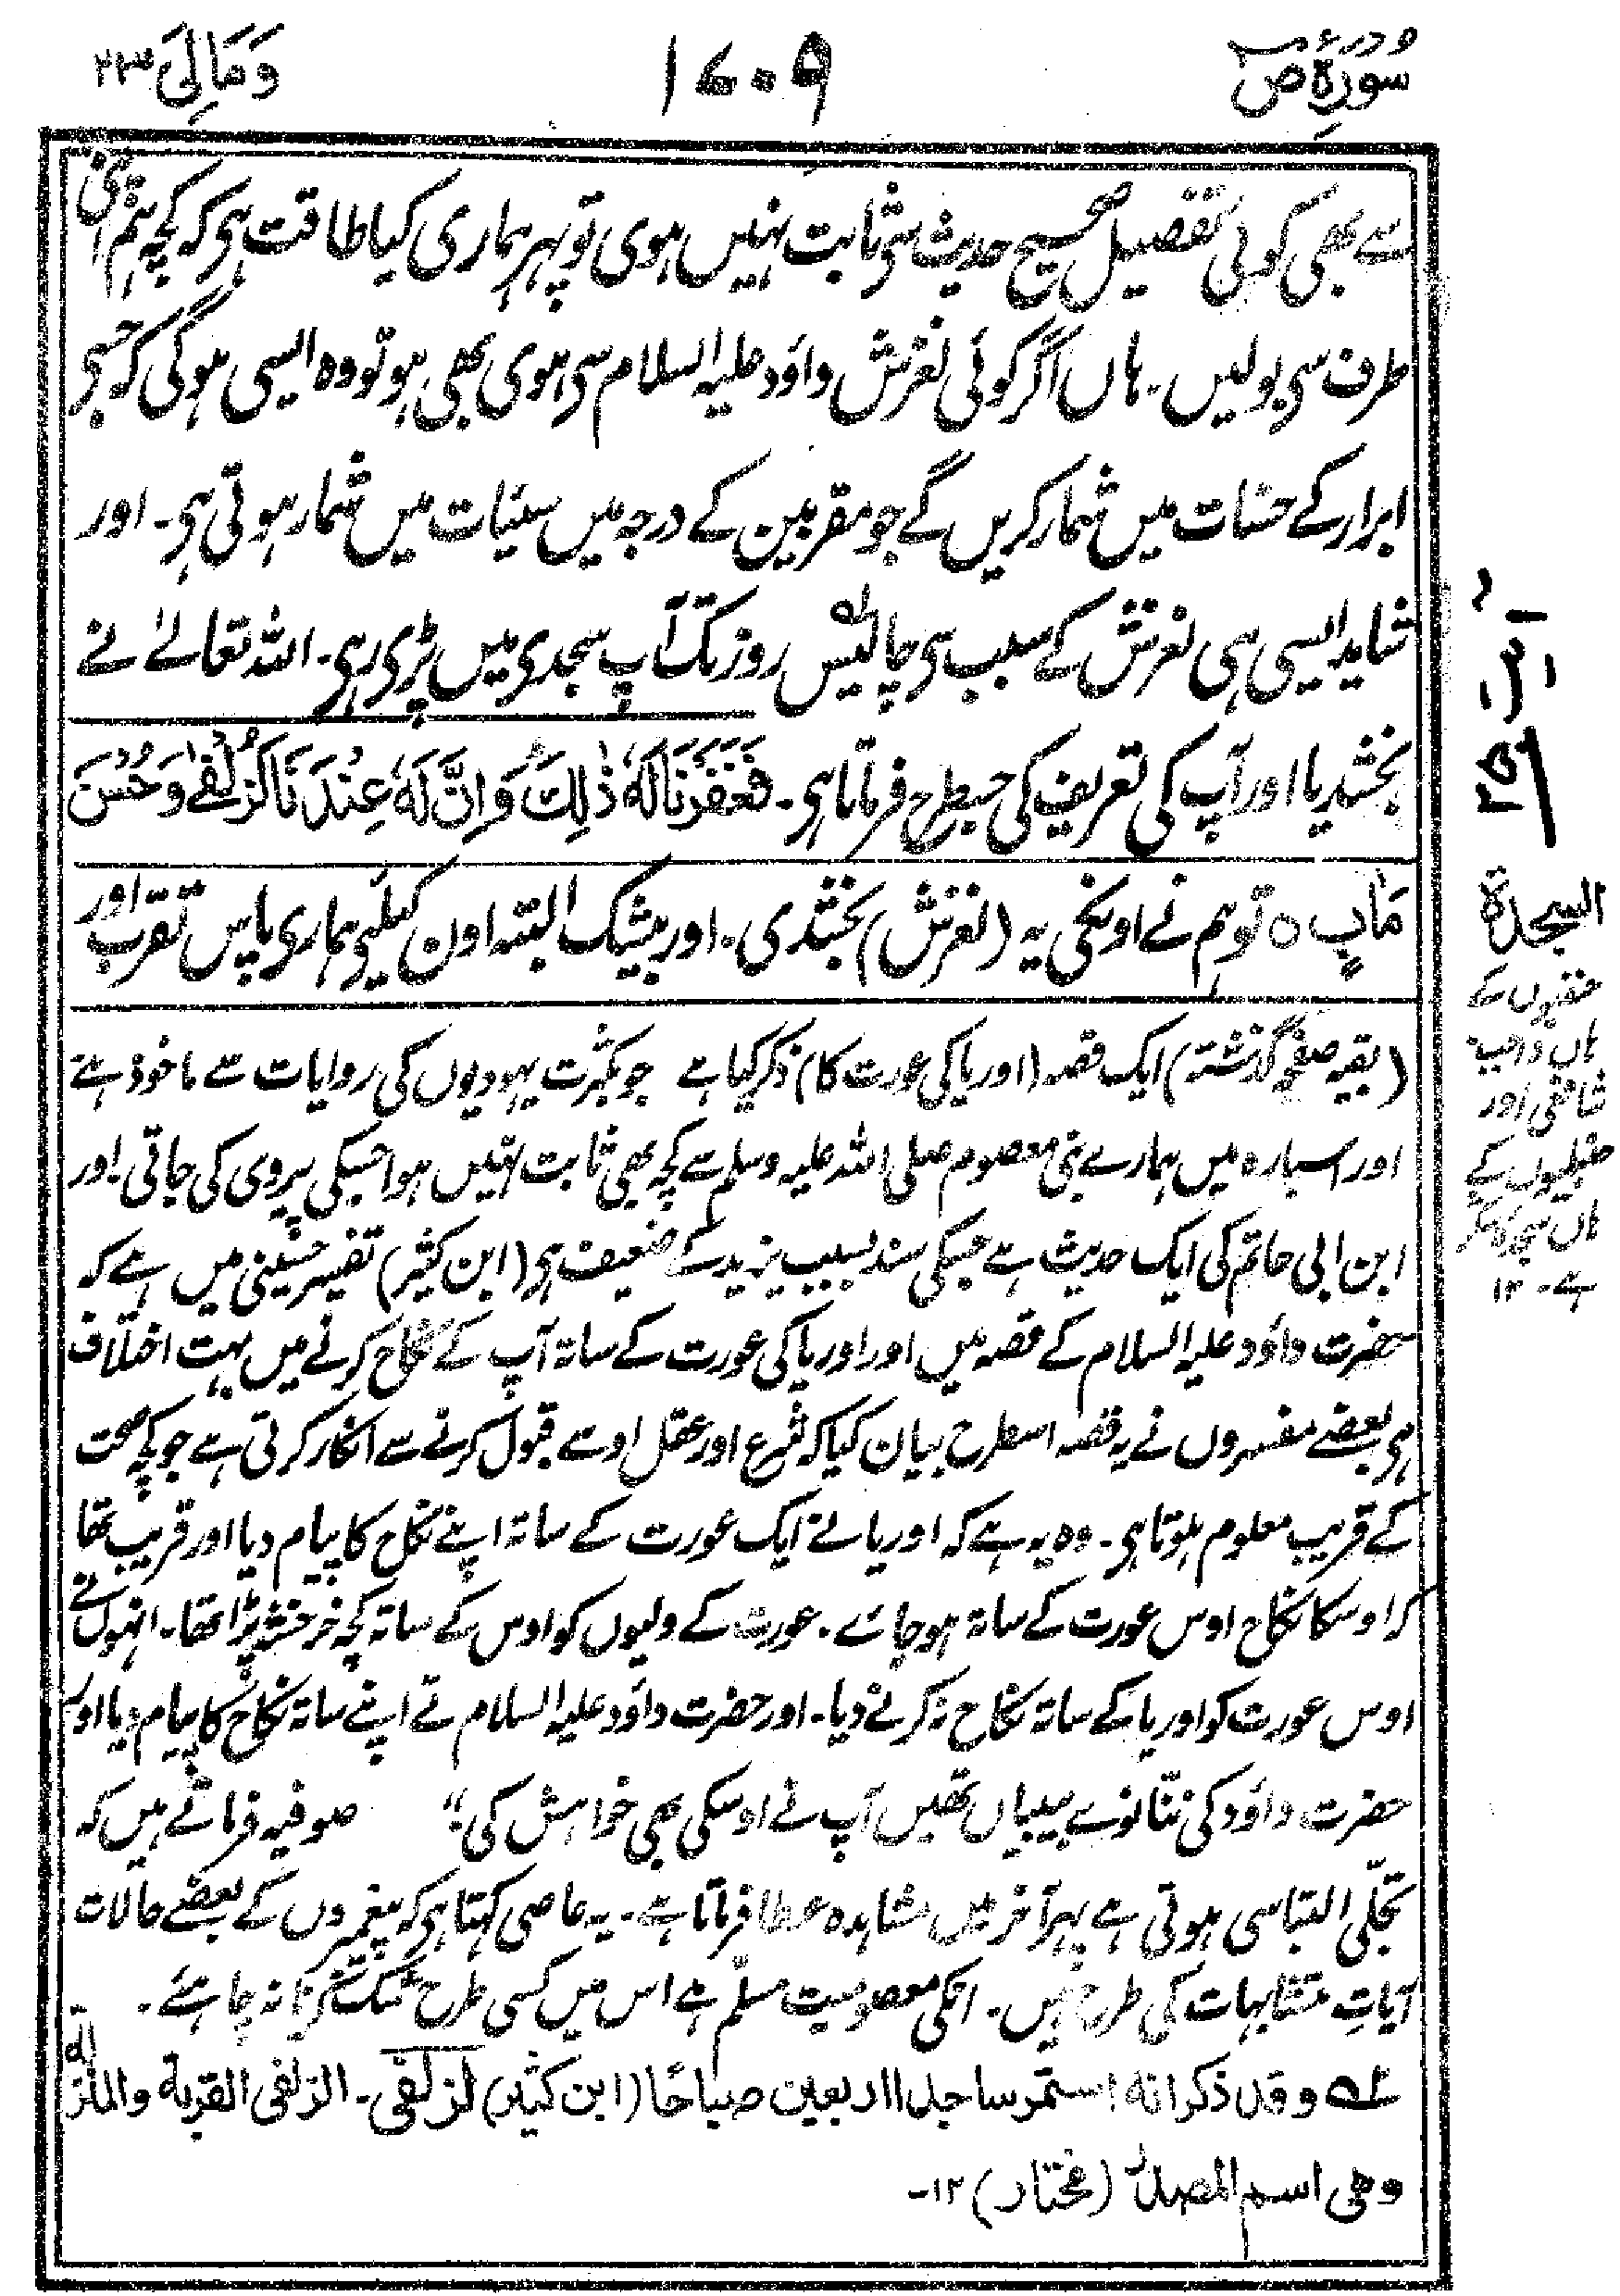 سورۂ صٓ
۱۶۰۹
وَمَالِیَ ۲۳
سے بھی کوئی تفصیل صحیح حدیث سی ثابت نہیں ہوی تو پہر ہماری کیا طاقت ہی کہ کچہ ہم اپنی
طرف سی بولیں۔ ہاں اگر کوئی لغزش داؤد علیہ السلام سی ہوی بھی ہو تو وہ ایسی ہوگی کہ جسی
ابرار کے حسنات میں شمار کریں گے جو مقربین کے درجہ میں سیّئات میں شمار ہوتی ہی۔ اور
شاید ایسی ہی لغزش کے سبب سی چالیسؔ روز تک آپ سجدی میں پڑی رہی۔ اللہ تعالےٰ نے
بخشدیا اور آپ کی تعریف کی جسطرح فرماتا ہی۔ فَغَفَرْنَا لَهٗ ذٰلِكَ ؕ وَاِنَّ لَهٗ عِنْدَنَا لَزُلْفٰے وَحُسْنَ
مَاٰبٍ ۝ تو ہم نے اونکی یہ (لغزش) بخشدی۔ اور بیشک البتہ اون کیلئی ہماری پاس تقرب اور
(بقیہ صفحۂ گذشتہ) ایک قصہ (اوریا کی عورت کا) ذکر کیا ہے جو بکثرت یہودیوں کی روایات سے ماخوذ ہے
اور اسبارہ میں ہمارے نبی معصوم صلی اللہ علیہ وسلم سے کچہ بھی ثابت نہیں ہوا جسکی پیروی کی جاتی۔ اور
ابن ابی حاتم کی ایک حدیث ہے جسکی سند بسبب یزید کے ضعیف ہی (ابن کثیر) تفسیر حسینی میں ہے کہ
حضرت داؤد علیہ السلام کے قصہ میں اور اوریا کی عورت کے ساتہ آپ کے نکاح کرنے میں بہت اختلاف
ہی بعضے مفسروں نے یہ قصہ اسطرح بیان کیا کہ شرع اور عقل اوسے قبول کرنے سے انکار کرتی ہے جو کچہ صحت
کے قریب معلوم ہوتا ہی۔ وہ یہ ہے کہ اوریا نے ایک عورت کے ساتہ اپنے نکاح کا پیام دیا اور قریب تھا
کہ اوسکا نکاح اوس عورت کے ساتہ ہو جائے۔ عورت کے ولیوں کو اوس کے ساتہ کچہ خرخشہ پڑا تھا۔ انہوں نے
اوس عورت کو اوریا کے ساتہ نکاح نہ کرنے دیا۔ اور حضرت داؤد علیہ السلام نے اپنے ساتہ نکاح کا پیام دیا اور
حضرت داؤد کی ننّانوے بیبیاں تھیں آپ نے اوسکی بھی خواہش کی" صوفیہ فرماتے ہیں کہ
تجلّی التباسی ہوتی ہے پہر آخر میں مشاہدہ عطا فرماتا ہے۔ یہ عاصی کہتا ہی کہ پیغمبروں کے بعضے حالات
آیاتِ متشابہات کی طرح ہیں۔ انکی معصومیت مسلّم ہے اس میں کسی طرح شک کرنا نہ چاہئے۔
عــه وقد ذكر انه استمر ساجدا اربعين صباحًا (ابن كثير) لزلفى۔ الزلفى القربة والمنزلة
وهى اسم المصدر (مختار) ۱۲۔
السجدة
حنفیوں کے
ہاں واجب
شافعی اور
حنبلیوں کے
ہاں سجدۂ شکر
ہے۔ ۱۲